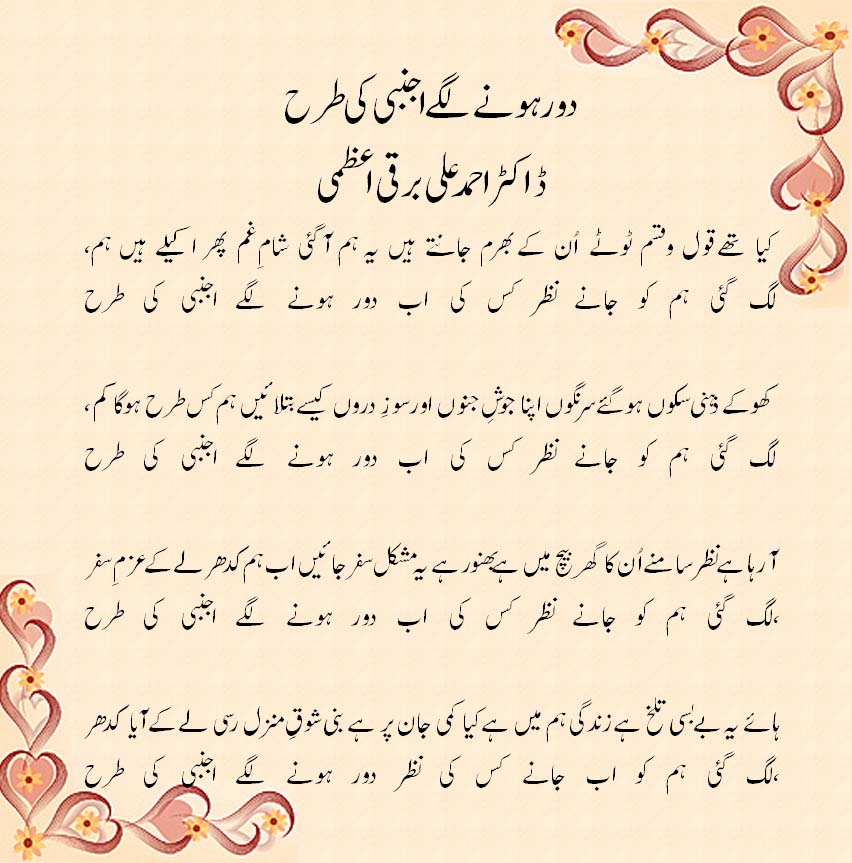 دور ہونے لگے اجنبی کی طرح
ڈاکٹر احمد علی برقی اعظمی
کیا تھے قول وقسم ٹوٹے اُن کے بھرم جانتے ہیں یہ ہم آگئی شامِ غم پھر اکیلے ہیں ہم،
لگ گئی ہم کو جانے نظر کس کی اب دور ہونے لگے اجنبی کی طرح
کھوکے ذہنی سکوں ہوگئے سرنگوں اپنا جوشِ جنوں اور سوزِ دروں کیسے بتلائیں ہم کس طرح ہوگا کم،
لگ گئی ہم کو جانے نظر کس کی اب دور ہونے لگے اجنبی کی طرح
آرہا ہے نظر سامنے اُن کا گھر بیچ میں ہے بھنور ہے یہ مشکل سفر جائیں اب ہم کدھر لے کے عزمِ سفر
،لگ گئی ہم کو جانے نظر کس کی اب دور ہونے لگے اجنبی کی طرح
ہائے یہ بے بسی تلخ ہے زندگی ہم میں ہے کیا کمی جان پر ہے بنی شوقِ منزل رسی لے کے آیا کدھر
،لگ گئی ہم کو اب جانے کس کی نظر دور ہونے لگے اجنبی کی طرح